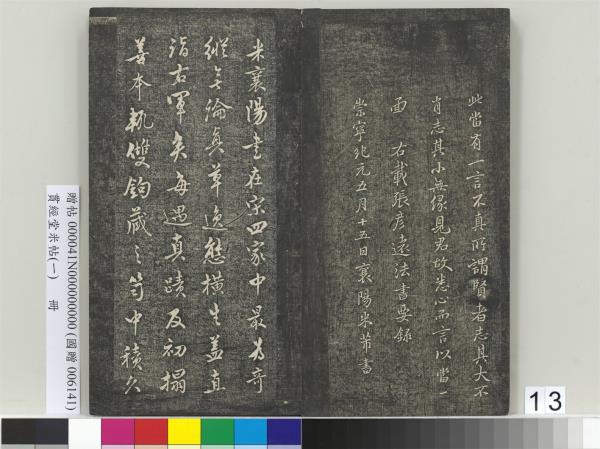 此當有一言不真所謂賢者志其大不
肖志其小無緣見君故悉心而言以當一
面 右載張彥遠法書要錄
崇寧紀元五月十五日襄陽米芾書
米襄陽書在宋四家中最為奇
縱無論真草逸態橫生蓋直
詣右軍矣每遇真蹟及初搨
善本執雙鉤藏之笥中積久
贈帖 000041N000000000 (國贈 006141)
貫經堂米帖(一) 冊
13